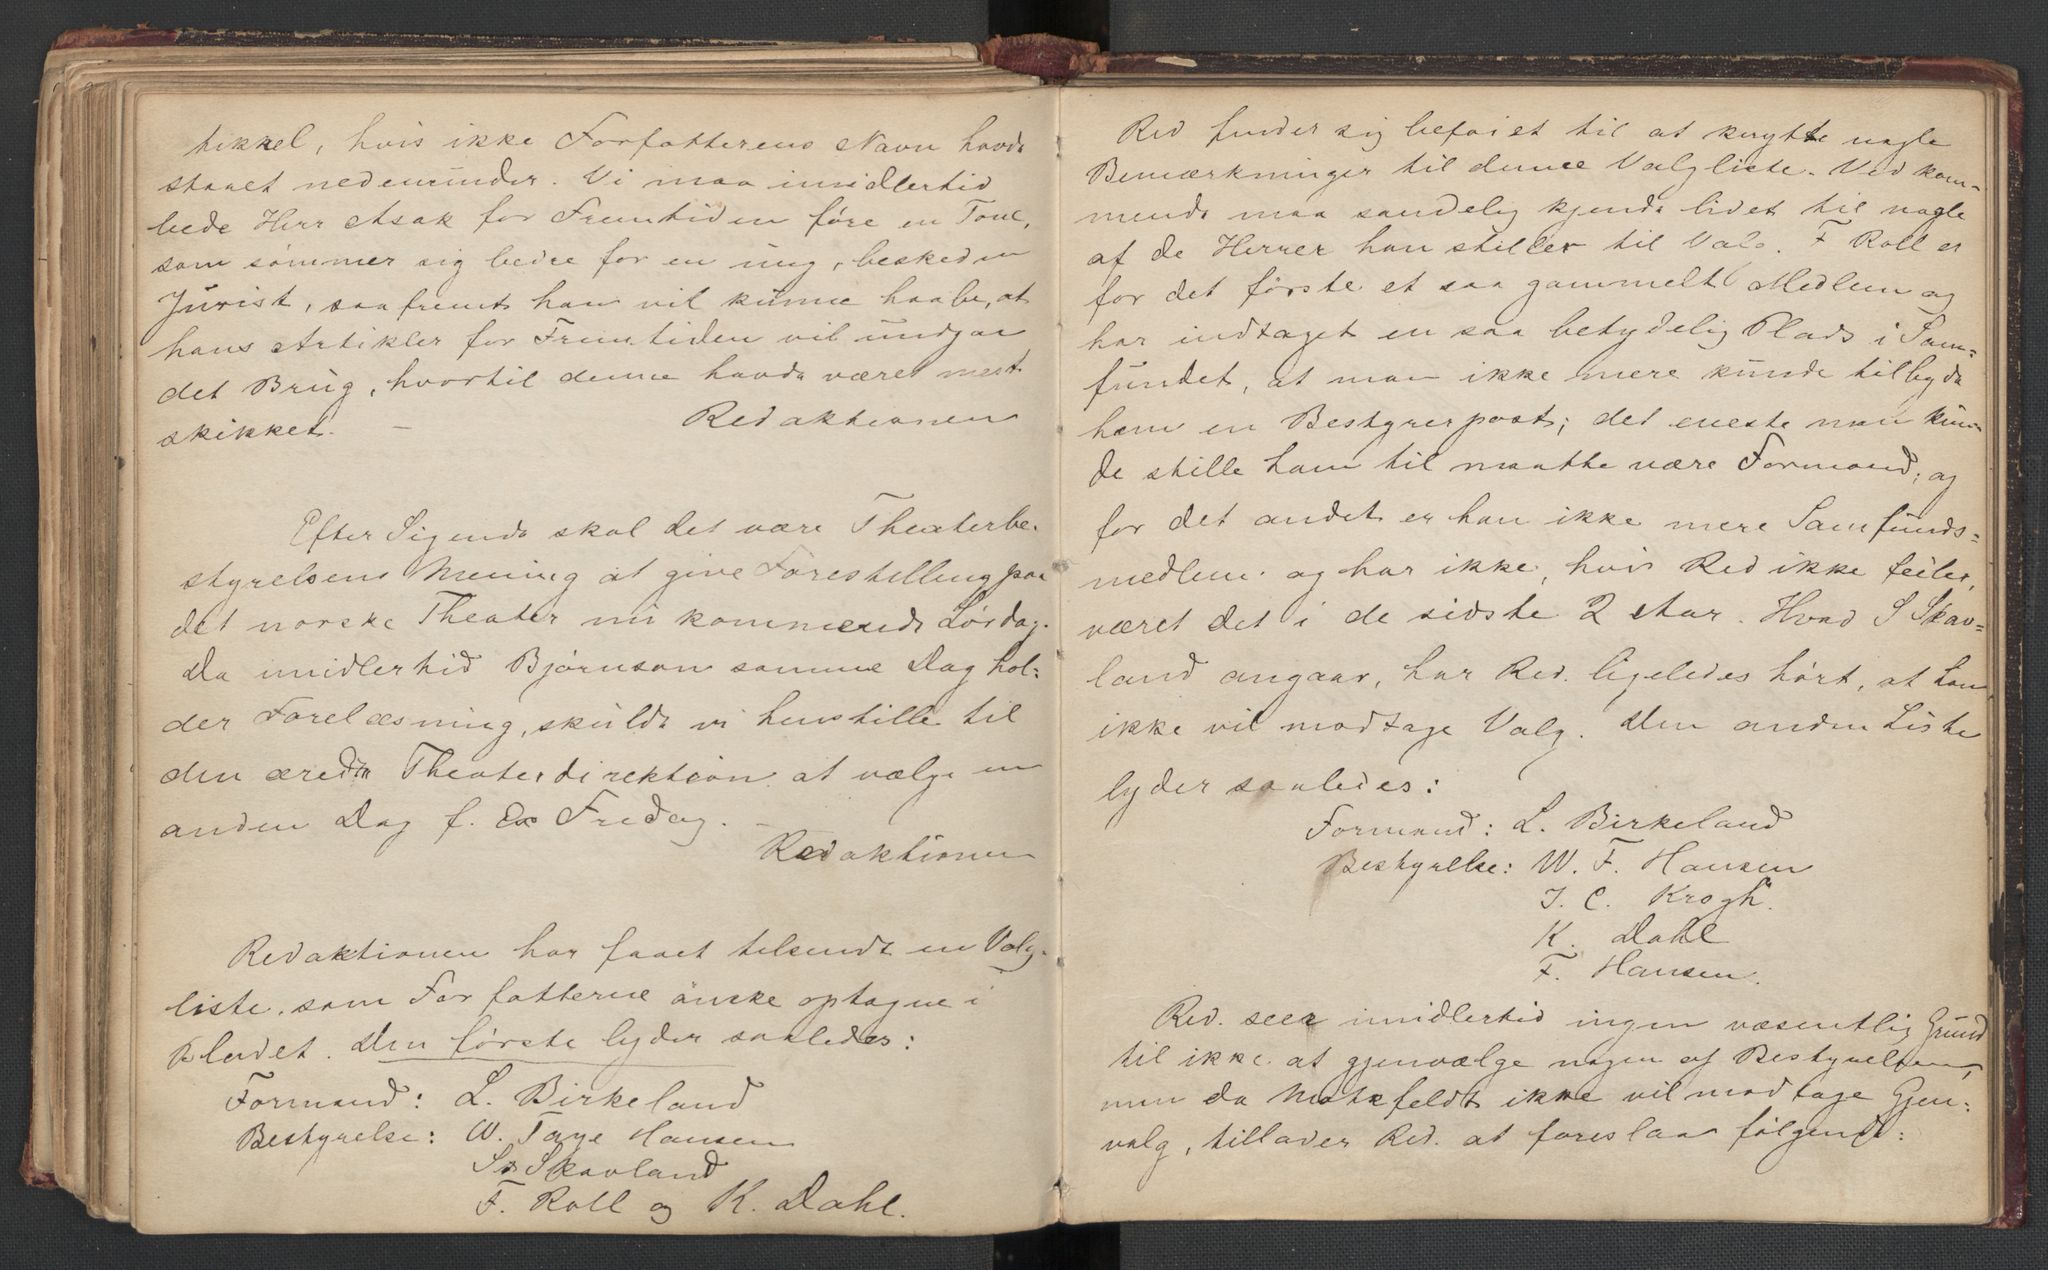 tikkel, hvis ikke Forfatterens Navn havde
staaet nedenunder. Vi maa imidlertid
bede Herr Asak for Fremtiden føre en Tone,
som sømmer sig bedre for en ung, beskeden
Jurist, saafremt han vil kunne haabe, at
hans Artikler for Fremtiden vil undgaa
det Brug, hvortil denne havde været mest
skikket. —
Redaktionen
Efter Sigende skal det være Theaterbe-
styrelsens Mening at give Forestilling paa
det norske Theater nu kommende Lørdag.
Da imidlertid Bjørnson samme Dag hol=
der Forelæsning, skulde vi henstille til
den ærede Theaterdirektion at vælge en
anden Dag f. Ex Fredag. —
Redaktionen
Redaktionen har faaet tilsendt en Valg-
liste, som Forfatterne ønske optagne i
Bladet. Den første lyder saaledes:
Formand: L. Birkeland
Bestyrelse: W. Faye Hansen
S. Skavland
F. Roll og K. Dahl.
Red finder sig beføiet til at knytte nogle
Bemærkninger til denne Valgliste. Vedkom-
mende maa sandelig kjende lidet til nogle
af de Herrer han stiller til Valg. F Roll er
for det første et saa gammelt Medlem og
har indtaget en saa betydelig Plads i Sam=
fundet, at man ikke mere kunde tilbyde
ham en Bestyrerpost; det eneste man kun-
de stille ham til maatte være Formand; og
for det andet er han ikke mere Samfunds=
medlem og har ikke, hvis Red ikke feiler,
været det i de sidste 2 Aar. Hvad S Skav=
land angaar, har Red. ligeledes hørt, at han
ikke vil modtage Valg. Den anden Liste
lyder saaledes:
Formand: L. Birkeland
Bestyrelse: W. F. Hansen
J. C. Krogh.
K. Dahl
F. Hansen.
Red. seer imidlertid ingen væsentlig Grund
til ikke at gjenvælge nogen af Bestyrelsen,
men da Motzfeldt ikke vil modtage Gjen=
valg, tillader Red. at foreslaa følgende: